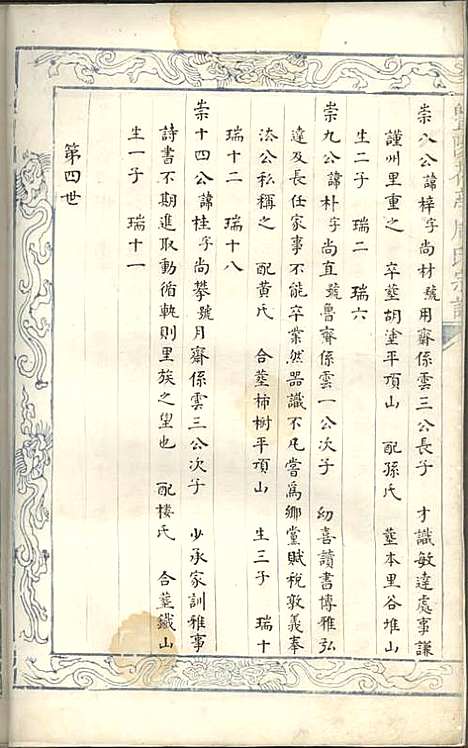 崇八公諱梓字尚材號用齋係雲三公長子 才識敏達處事謙
謹州里重之 卒塟胡塗平項山 配孫氏 塟本里谷堆山
生二子 瑞二 瑞六
崇九公諱朴字尚直號魯齋係雲一公次子 幼喜讀書博雅弘
達及長任家事不能卒業然器識不凡嘗爲鄉黨賦稅敦義奉
法公私稱之 配黃氏 合塟柿樹平項山 生三子 瑞十
瑞十二 瑞十八
崇十四公諱桂字尚攀號月齋係雲三公次子 少承家訓雅事
詩書不期進取動循軌則里族之望也 配樓氏 合塟鐵山
生一子 瑞十一
第四世